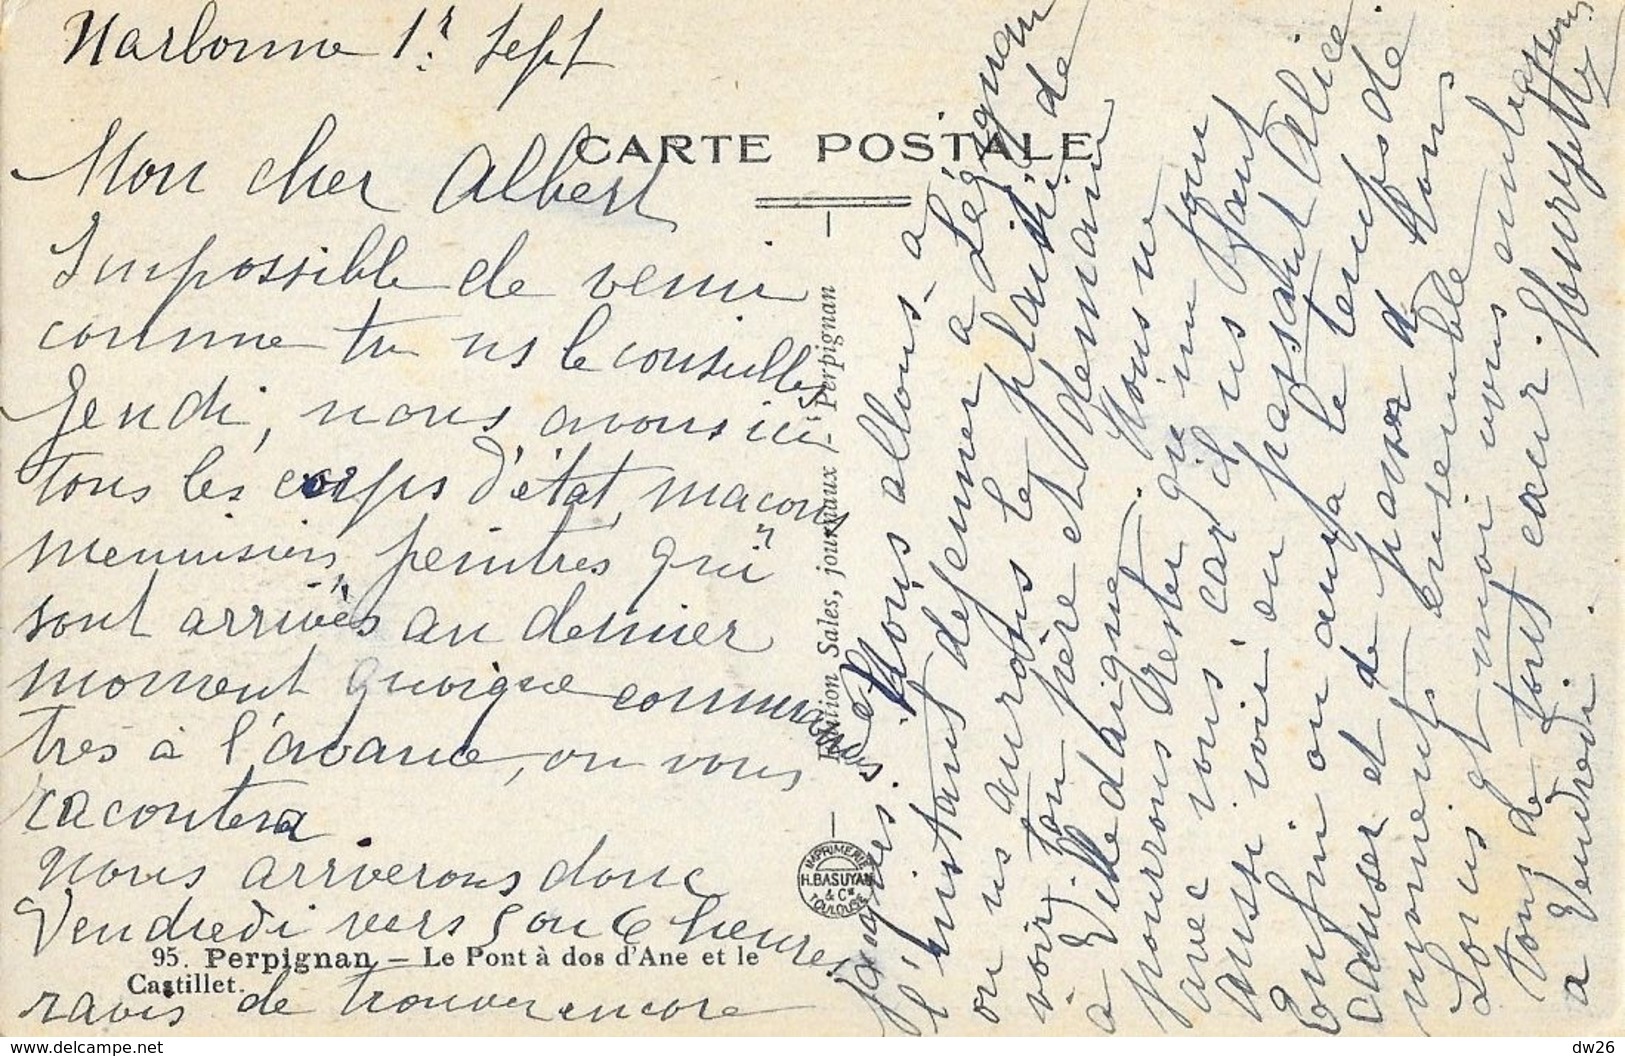 Narbonne 1r Sept
CARTE POSTALE
Mon cher Albert
Impossible de venir
comme tu ns le conseilles
Jeudi, nous avons ici
tous les corps d'état, maçons
menuisiers, peintres qui
sont arrivés au dernier
moment quoique commandés
très à l'avance, on vous
racontera
Nous arriverons donc
Vendredi vers 5 ou 6 heures
ravis de trouver encore
95. Perpignan - Le Pont à dos d'Ane et le
Castillet.
Edition Sales, journaux - Perpignan
IMPRIMERIE
H. BASUYAU
& Cie
TOULOUSE
Jacques. Nous allons à
l'instant déjeuner à Lézignan
où ns aurons le plaisir de
voir ton père et demain
à Villedaigne. Nous ne
pourrons rester qu'un jour
avec vous car il ns faut
aussi voir en passant Alice
Enfin on aura le temps de
causer et de passer de bons
moments ensemble
Louis et moi vous embrassons
tous de tout cœur.
à Vendredi.